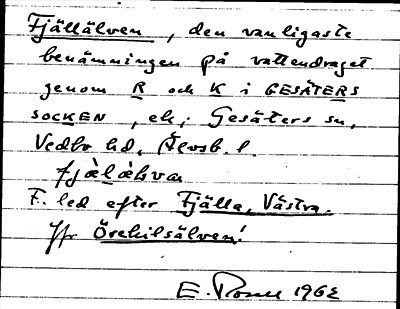 Fjällälven, den vanligaste
benämningen på vattendraget
genom R och K i GESÄTERS
SOCKEN, ek, Gesäters sn,
Vedbo hd, Älvsb. l.
fjälälva
F. led efter Fjälla, Västra.
Jfr Örekilsälven!
E. 1962